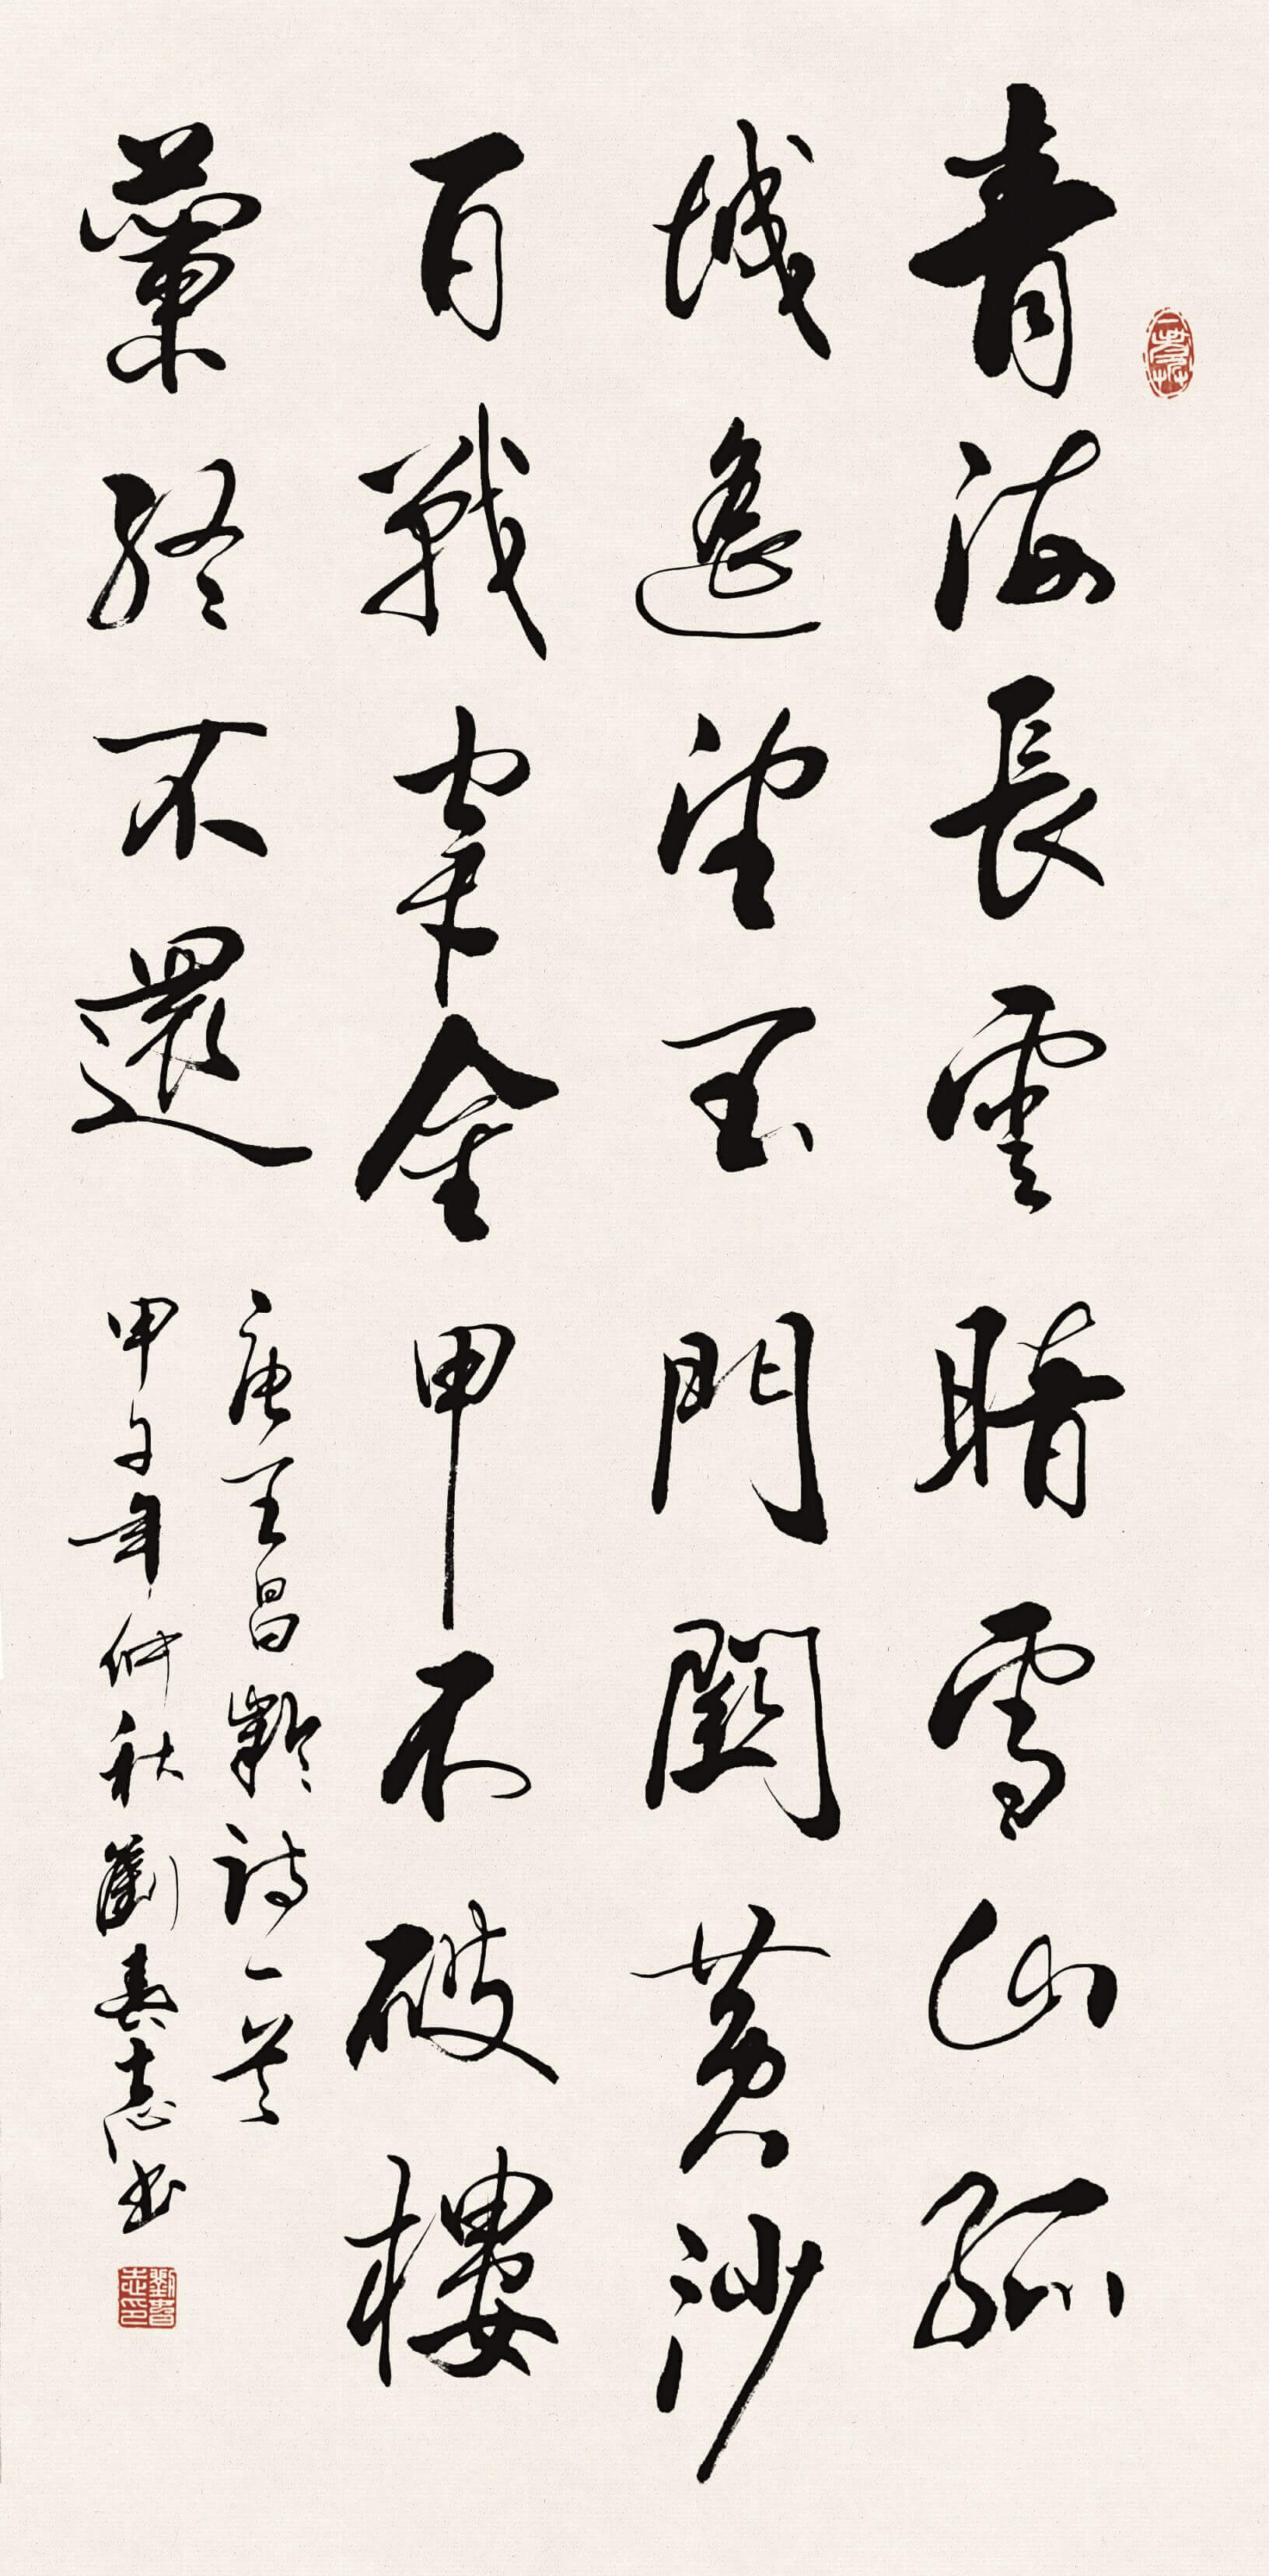 青海長雲暗雪山孤
城遙望玉門關黃沙
百戰穿金甲不破樓
蘭終不還
唐王昌齡詩一首
甲午年仲秋劉春志書
劉春志印